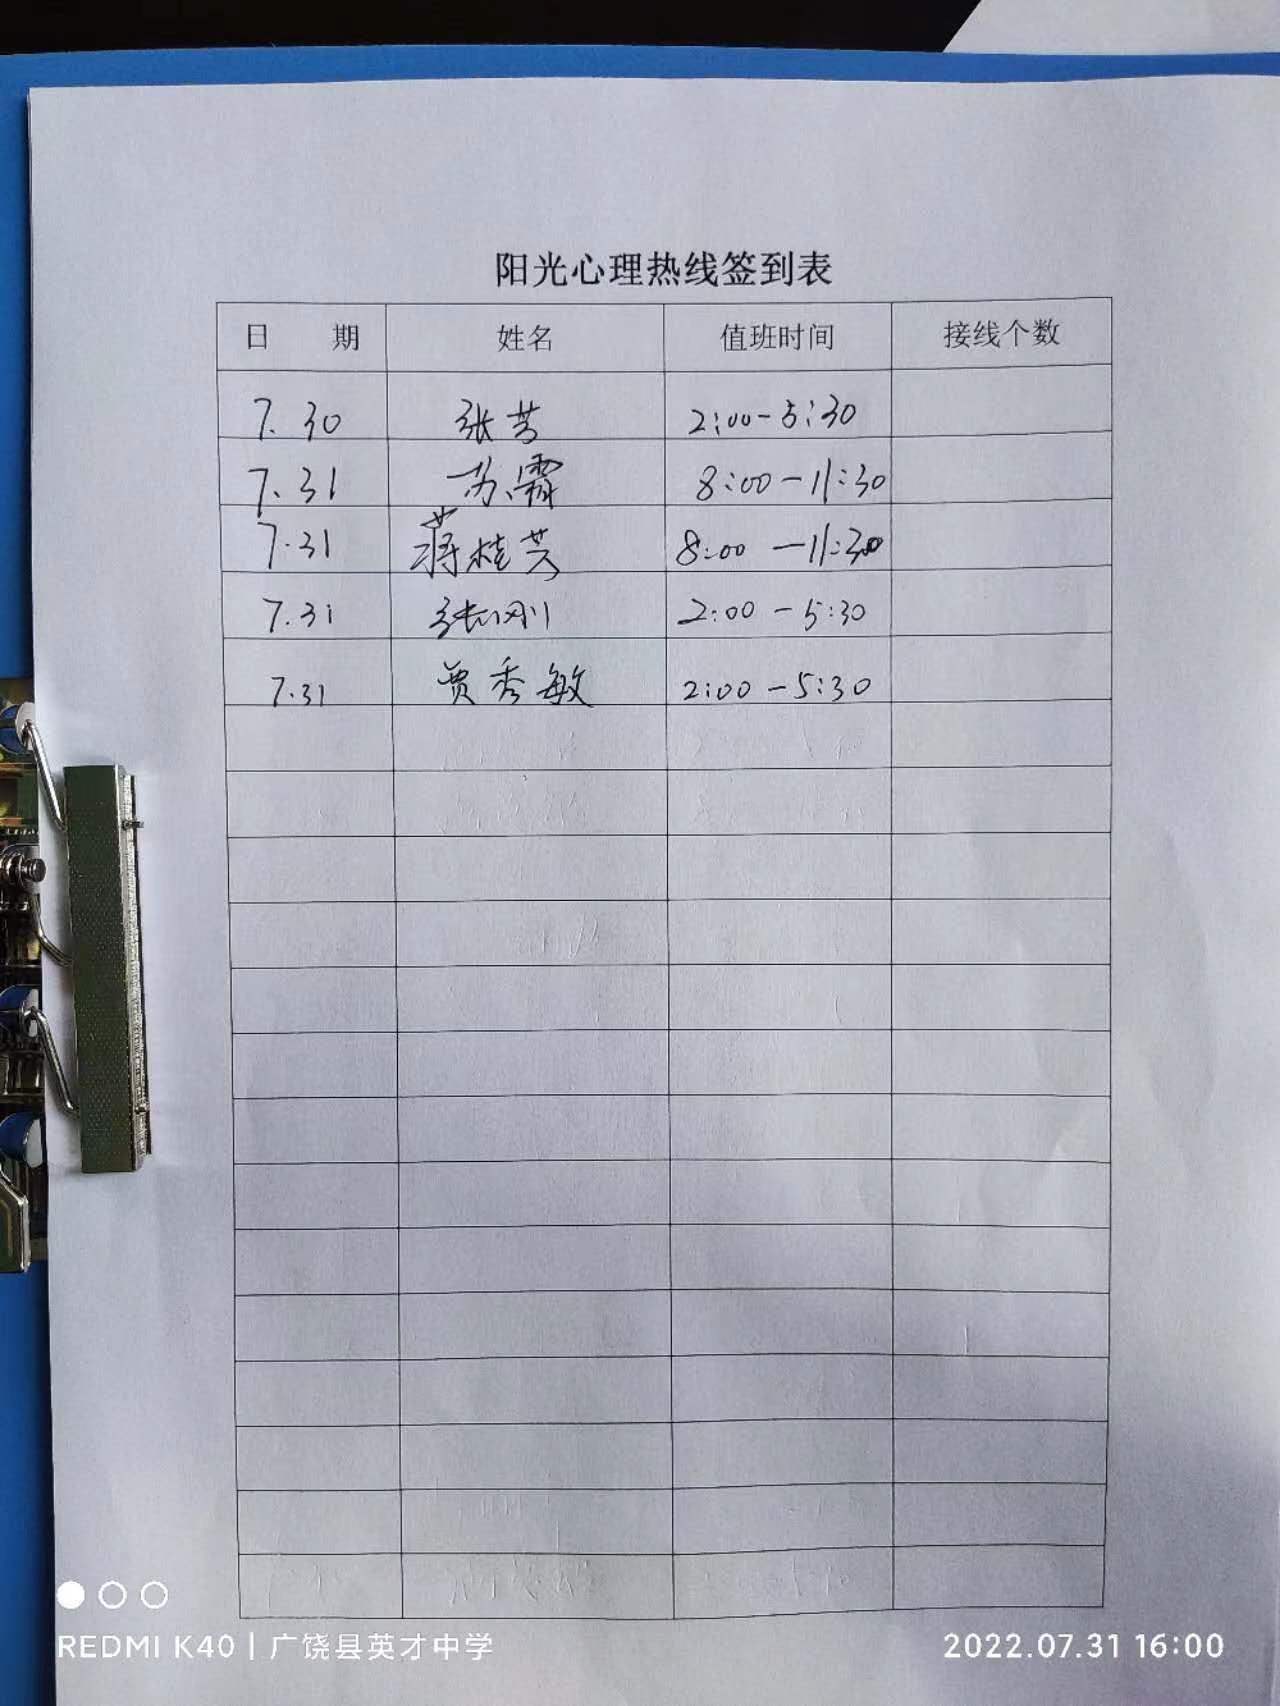 阳光心理热线签到表
日 期 姓名 值班时间 接线个数
7.30 张芳 2:00-5:30
7.31 苏霄 8:00-11:30
7.31 蒋桂芝 8:00-11:30
7.31 张刚 2:00-5:30
7.31 贾秀敏 2:00-5:30
REDMI K40 | 广饶县英才中学 2022.07.31 16:00